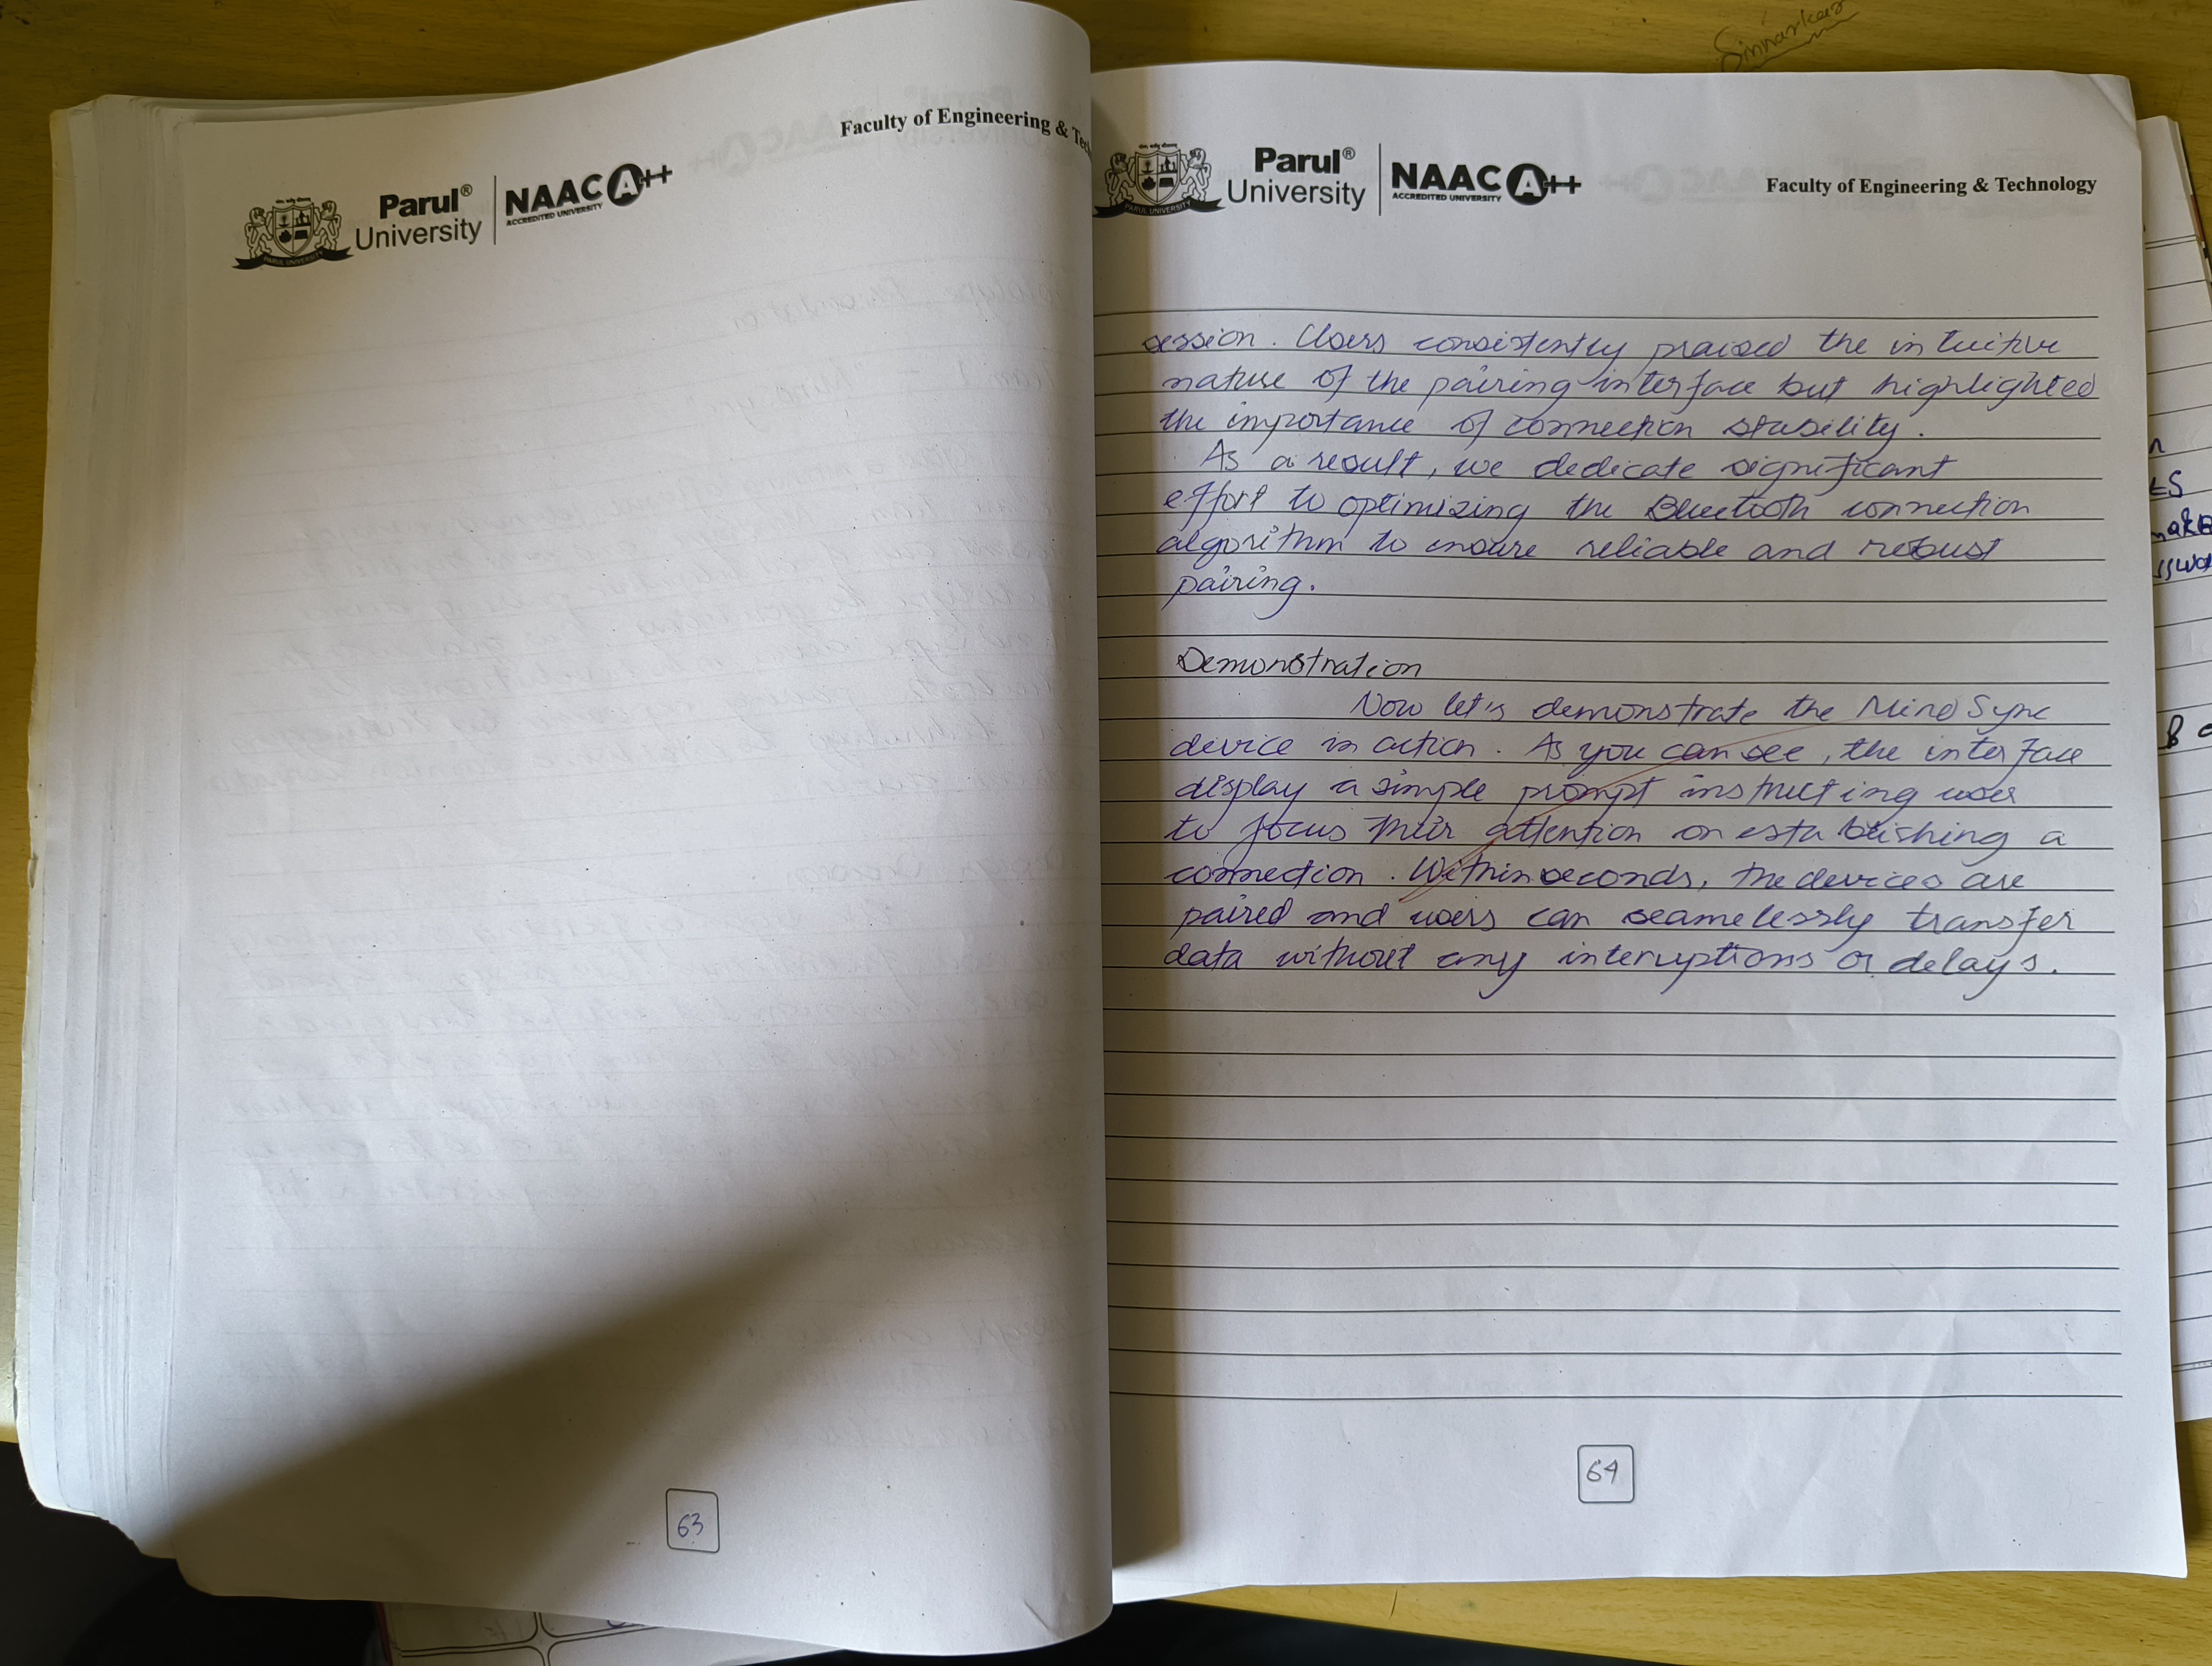 Sinnarkar
Faculty of Engineering & Tech
Parul®
University
NAAC A++
ACCREDITED UNIVERSITY
PARUL UNIVERSITY
63
Parul®
University
NAAC A++
ACCREDITED UNIVERSITY
PARUL UNIVERSITY
Faculty of Engineering & Technology
session. Users consistently praised the intuitive
nature of the pairing interface but highlighted
the importance of connection stability.
As a result, we dedicate significant
effort to optimizing the Bluetooth connection
algorithm to ensure reliable and robust
pairing.
Demonstration
Now let's demonstrate the Mind Sync
device in action. As you can see, the interface
display a simple prompt instructing user
to focus their attention on establishing a
connection. Within seconds, the devices are
paired and users can seamelessly transfer
data without any interuptions or delays.
64